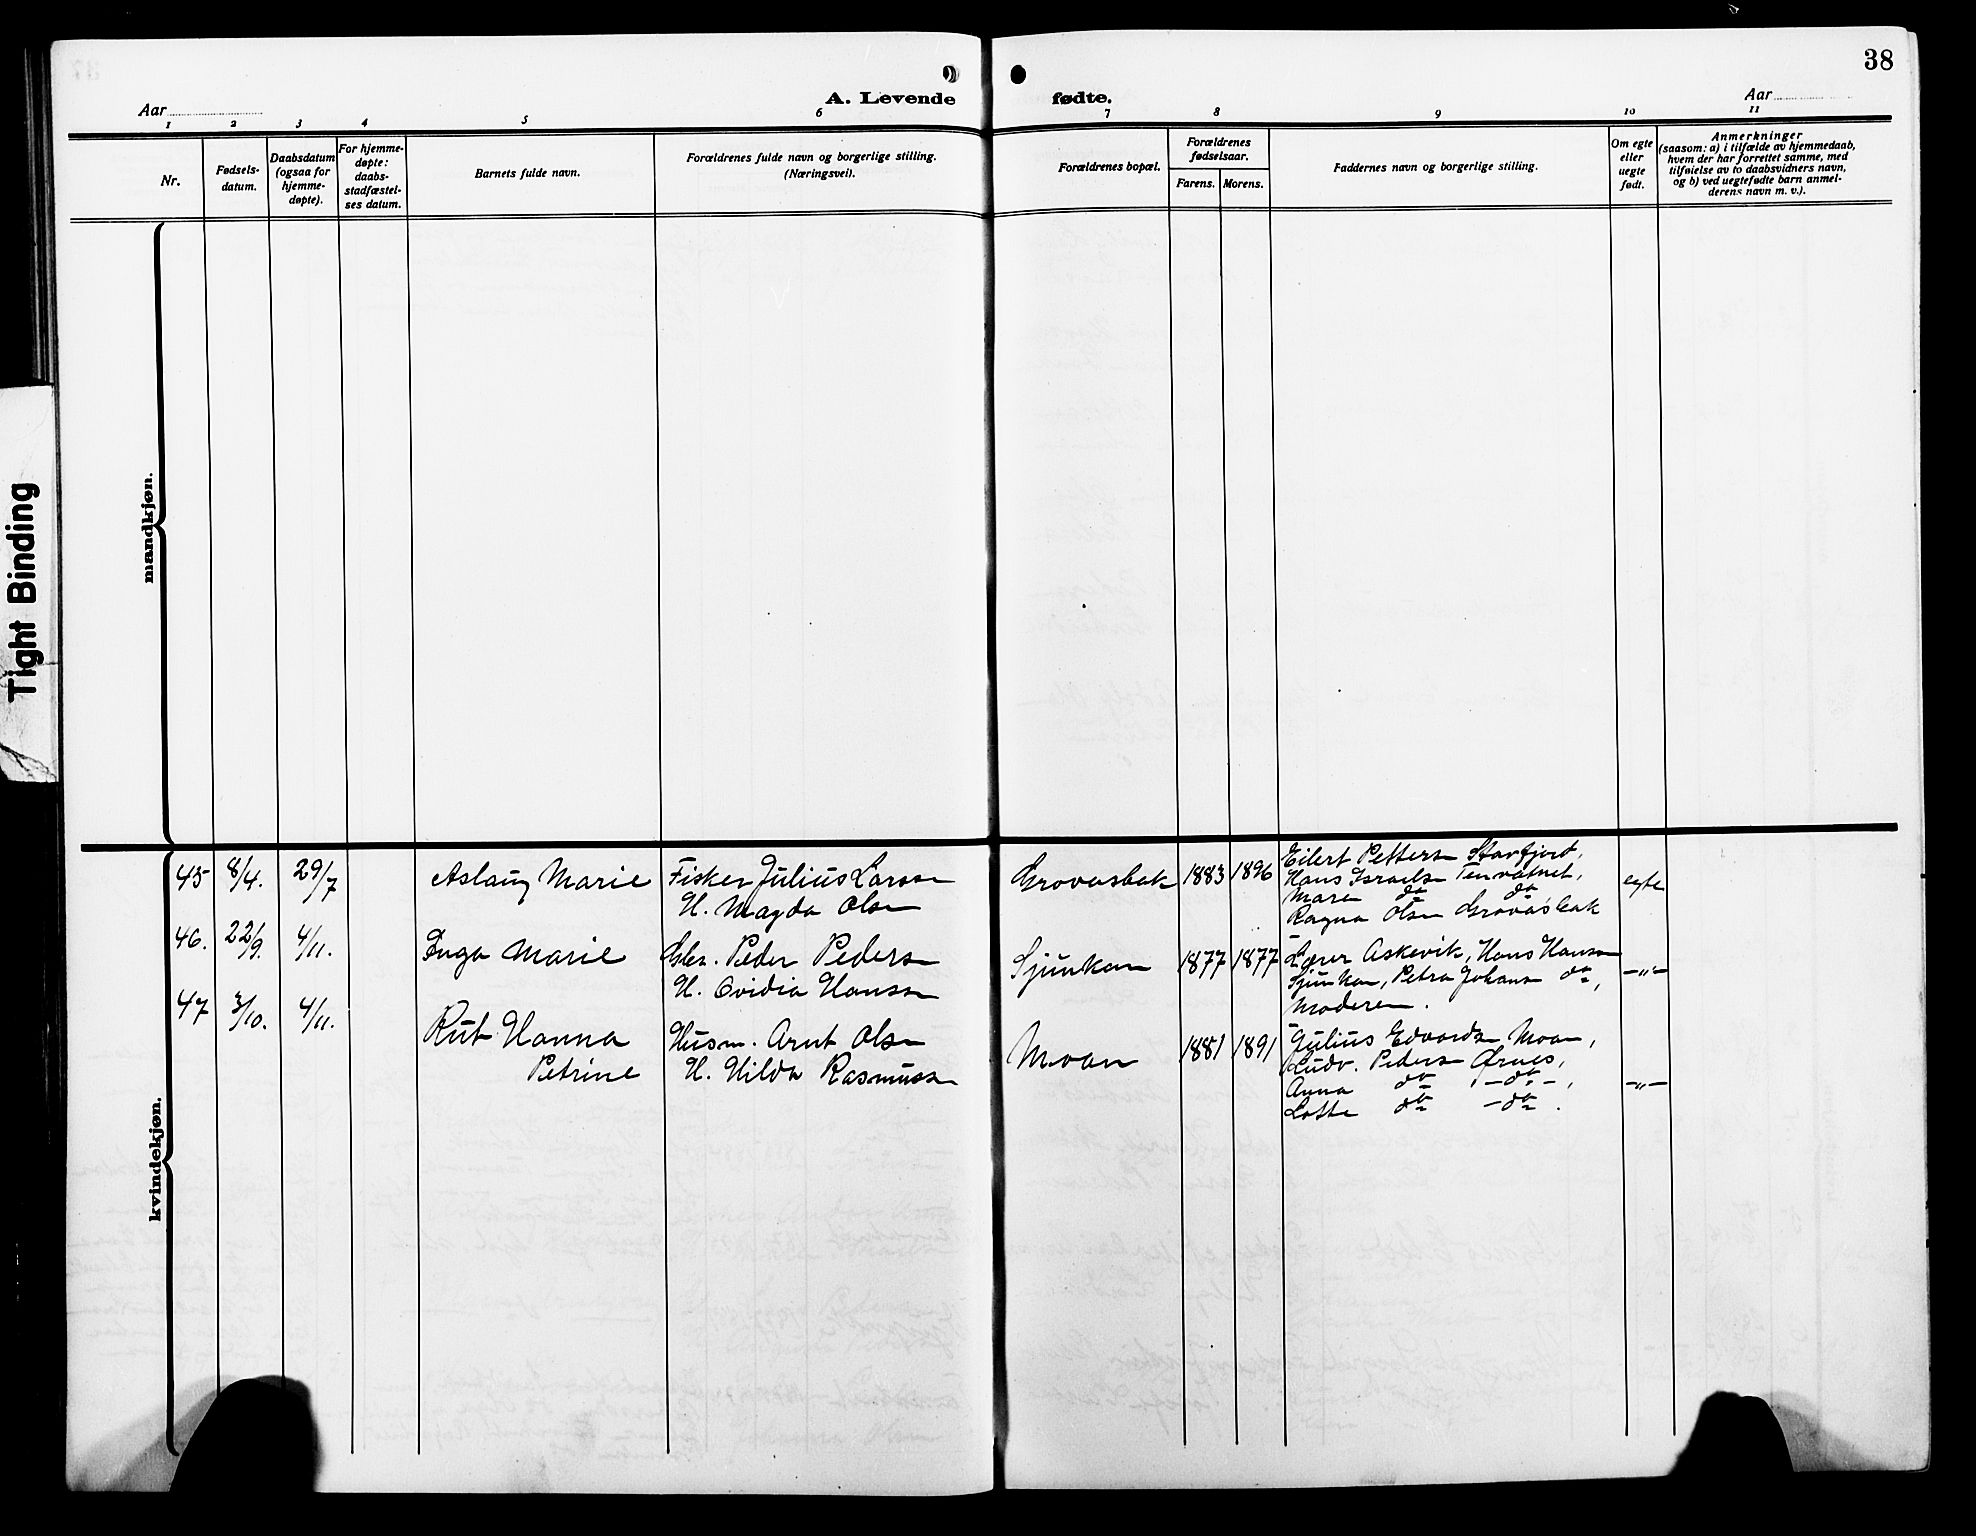 38
A. Levende fødte.
Aar
Aar
1 2 3 4 5 6 7 8 9 10 11
Nr.
Fødsels-
datum.
Daabsdatum
(ogsaa for
hjemme-
døpte).
For hjemme-
døpte:
daabs-
stadfæstel-
ses datum.
Barnets fulde navn.
Forældrenes fulde navn og borgerlige stilling.
(Næringsvei).
Forældrenes bopæl.
Forældrenes
fødselsaar.
Farens. Morens.
Faddernes navn og borgerlige stilling.
Om egte
eller
uegte
født.
Anmerkninger
(saasom: a) i tilfælde av hjemmedaab,
hvem der har forrettet samme, med
tilføielse av to daabsvidners navn,
og b) ved uegtefødte barn anmel-
derens navn m. v.).
Tight Binding
mandkjøn.
kvindekjøn.
45 8/4. 29/7 Aslaug Marie Fisker Julius Larssen
H. Magda Olsen
Grovasbak 1883 1896
Eilert Petterse Storfjord,
Hans Israelsen Tennvatnet,
Maren do do
Ragna Olsen Grovasbak
egte
46. 22/9. 4/11. Inga Marie Gbr. Peder Pedersen
H. Ovidia Hanssen
Sjunkan 1877 1877
Lærer Askevik, Hans Hansen
Sjunkan, Petra Johans do,
Moderen.
-"-
47 3/10. 4/11. Rut Hanna
Petrine
Husm. Arnt Olsen
H. Hilda Rasmussen
Moan 1881 1891
Julius Edvardsen Moan,
Ludv. Peders Ørnes,
Anna do -do-,
Lotte do -do.
-"-